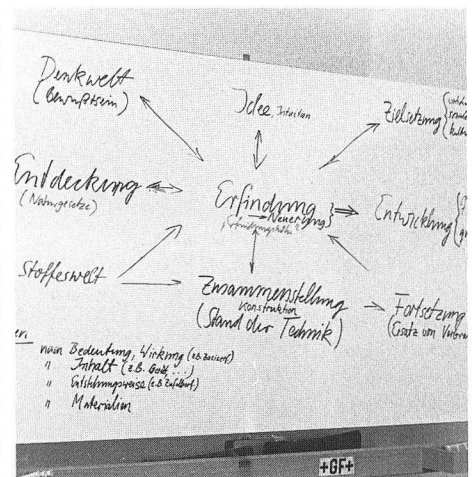 Denkwelt
(Bewußtsein)
Idee, Intuition
Zielsetzung {
Entdeckung
(Naturgesetze)
Erfindung
→ Neuerung }
Entwicklung {
Stoffeswelt
Zusammenstellung
Konstruktion
(Stand der Technik)
Fortsetzung
(Ersatz von
nach Bedeutung, Wirkung (z.B.
" Inhalt (z.B.
" (z.B. Zufallserf.)
" Materialien
+GF+